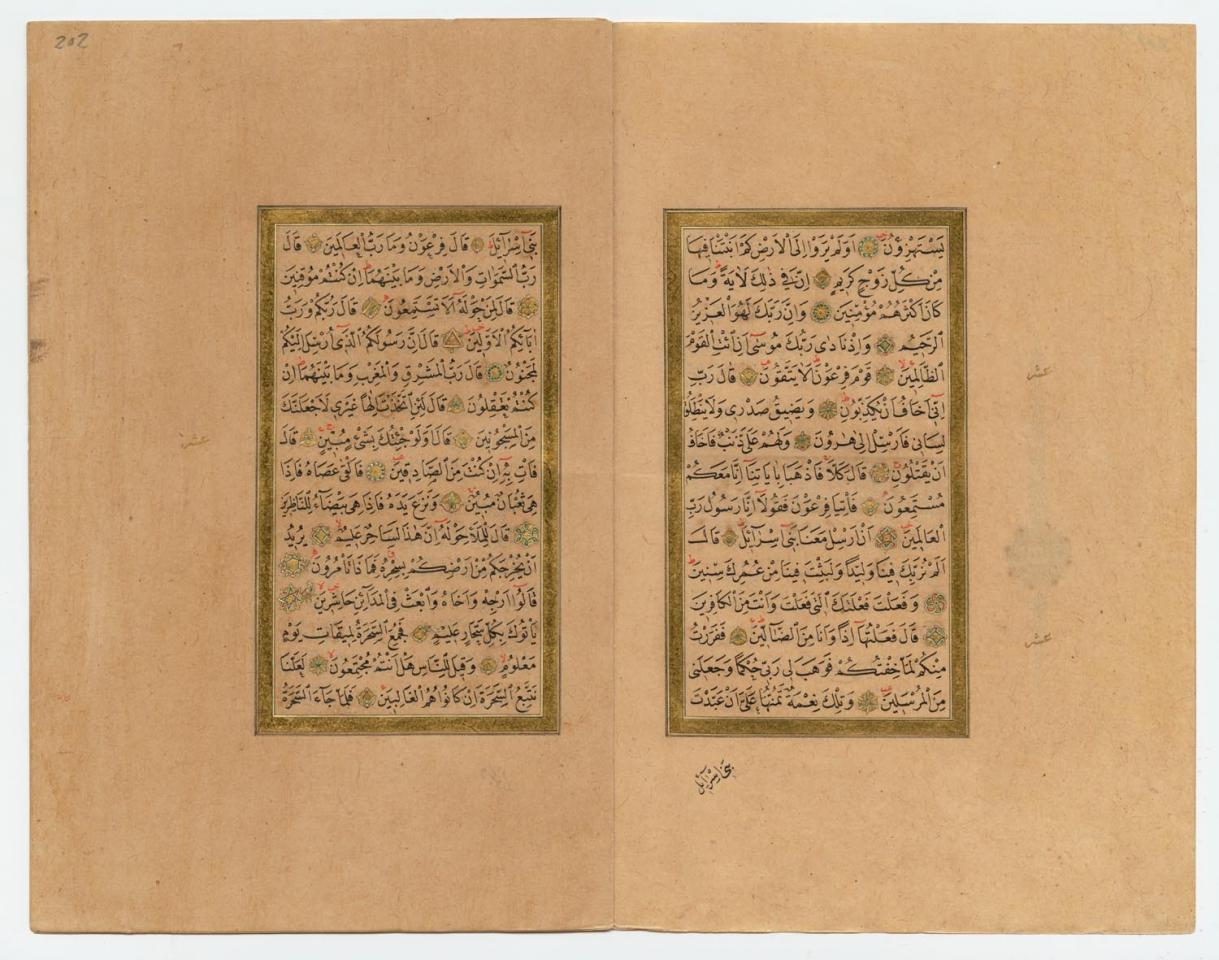 يَسْتَهْزِؤُنَ اَوَلَمْ يَرَوْا اِلَى الْاَرْضِ كَمْ اَنْبَتْنَا فِيهَا
مِنْ كُلِّ زَوْجٍ كَرِيمٍ اِنَّ فِي ذٰلِكَ لَاٰيَةً وَمَا
كَانَ اَكْثَرُهُمْ مُؤْمِنِينَ وَاِنَّ رَبَّكَ لَهُوَ الْعَزِيزُ
الرَّحِيمُ وَاِذْ نَادٰى رَبُّكَ مُوسٰى اَنِ ائْتِ الْقَوْمَ
الظَّالِمِينَ قَوْمَ فِرْعَوْنَ اَلَا يَتَّقُونَ قَالَ رَبِّ
اِنِّي اَخَافُ اَنْ يُكَذِّبُونِ وَيَضِيقُ صَدْرِي وَلَا يَنْطَلِقُ
لِسَانِي فَاَرْسِلْ اِلٰى هٰرُونَ وَلَهُمْ عَلَيَّ ذَنْبٌ فَاَخَافُ
اَنْ يَقْتُلُونِ قَالَ كَلَّا فَاذْهَبَا بِاٰيَاتِنَا اِنَّا مَعَكُمْ
مُسْتَمِعُونَ فَأْتِيَا فِرْعَوْنَ فَقُولَا اِنَّا رَسُولُ رَبِّ
الْعَالَمِينَ اَنْ اَرْسِلْ مَعَنَا بَنِي اِسْرَائِلَ قَالَ
اَلَمْ نُرَبِّكَ فِينَا وَلِيدًا وَلَبِثْتَ فِينَا مِنْ عُمُرِكَ سِنِينَ
وَفَعَلْتَ فَعْلَتَكَ الَّتِي فَعَلْتَ وَاَنْتَ مِنَ الْكَافِرِينَ
قَالَ فَعَلْتُهَا اِذًا وَاَنَا مِنَ الضَّالِّينَ فَفَرَرْتُ
مِنْكُمْ لَمَّا خِفْتُكُمْ فَوَهَبَ لِي رَبِّي حُكْمًا وَجَعَلَنِي
مِنَ الْمُرْسَلِينَ وَتِلْكَ نِعْمَةٌ تَمُنُّهَا عَلَيَّ اَنْ عَبَّدْتَ
بني اسرائل
عشر
عشر
202
بَنِي اِسْرَائِلَ قَالَ فِرْعَوْنُ وَمَا رَبُّ الْعَالَمِينَ قَالَ
رَبُّ السَّمٰوَاتِ وَالْاَرْضِ وَمَا بَيْنَهُمَا اِنْ كُنْتُمْ مُوقِنِينَ
قَالَ لِمَنْ حَوْلَهُ اَلَا تَسْتَمِعُونَ قَالَ رَبُّكُمْ وَرَبُّ
اٰبَائِكُمُ الْاَوَّلِينَ قَالَ اِنَّ رَسُولَكُمُ الَّذِي اُرْسِلَ اِلَيْكُمْ
لَمَجْنُونٌ قَالَ رَبُّ الْمَشْرِقِ وَالْمَغْرِبِ وَمَا بَيْنَهُمَا اِنْ
كُنْتُمْ تَعْقِلُونَ قَالَ لَئِنِ اتَّخَذْتَ اِلٰهًا غَيْرِي لَاَجْعَلَنَّكَ
مِنَ الْمَسْجُونِينَ قَالَ اَوَلَوْ جِئْتُكَ بِشَيْءٍ مُبِينٍ قَالَ
فَأْتِ بِهِ اِنْ كُنْتَ مِنَ الصَّادِقِينَ فَاَلْقٰى عَصَاهُ فَاِذَا
هِيَ ثُعْبَانٌ مُبِينٌ وَنَزَعَ يَدَهُ فَاِذَا هِيَ بَيْضَاءُ لِلنَّاظِرِينَ
قَالَ لِلْمَلَاِ حَوْلَهُ اِنَّ هٰذَا لَسَاحِرٌ عَلِيمٌ يُرِيدُ
اَنْ يُخْرِجَكُمْ مِنْ اَرْضِكُمْ بِسِحْرِهِ فَمَاذَا تَأْمُرُونَ
قَالُوا اَرْجِهْ وَاَخَاهُ وَابْعَثْ فِي الْمَدَائِنِ حَاشِرِينَ
يَأْتُوكَ بِكُلِّ سَحَّارٍ عَلِيمٍ فَجُمِعَ السَّحَرَةُ لِمِيقَاتِ يَوْمٍ
مَعْلُومٍ وَقِيلَ لِلنَّاسِ هَلْ اَنْتُمْ مُجْتَمِعُونَ لَعَلَّنَا
نَتَّبِعُ السَّحَرَةَ اِنْ كَانُوا هُمُ الْغَالِبِينَ فَلَمَّا جَاءَ السَّحَرَةُ
عشر